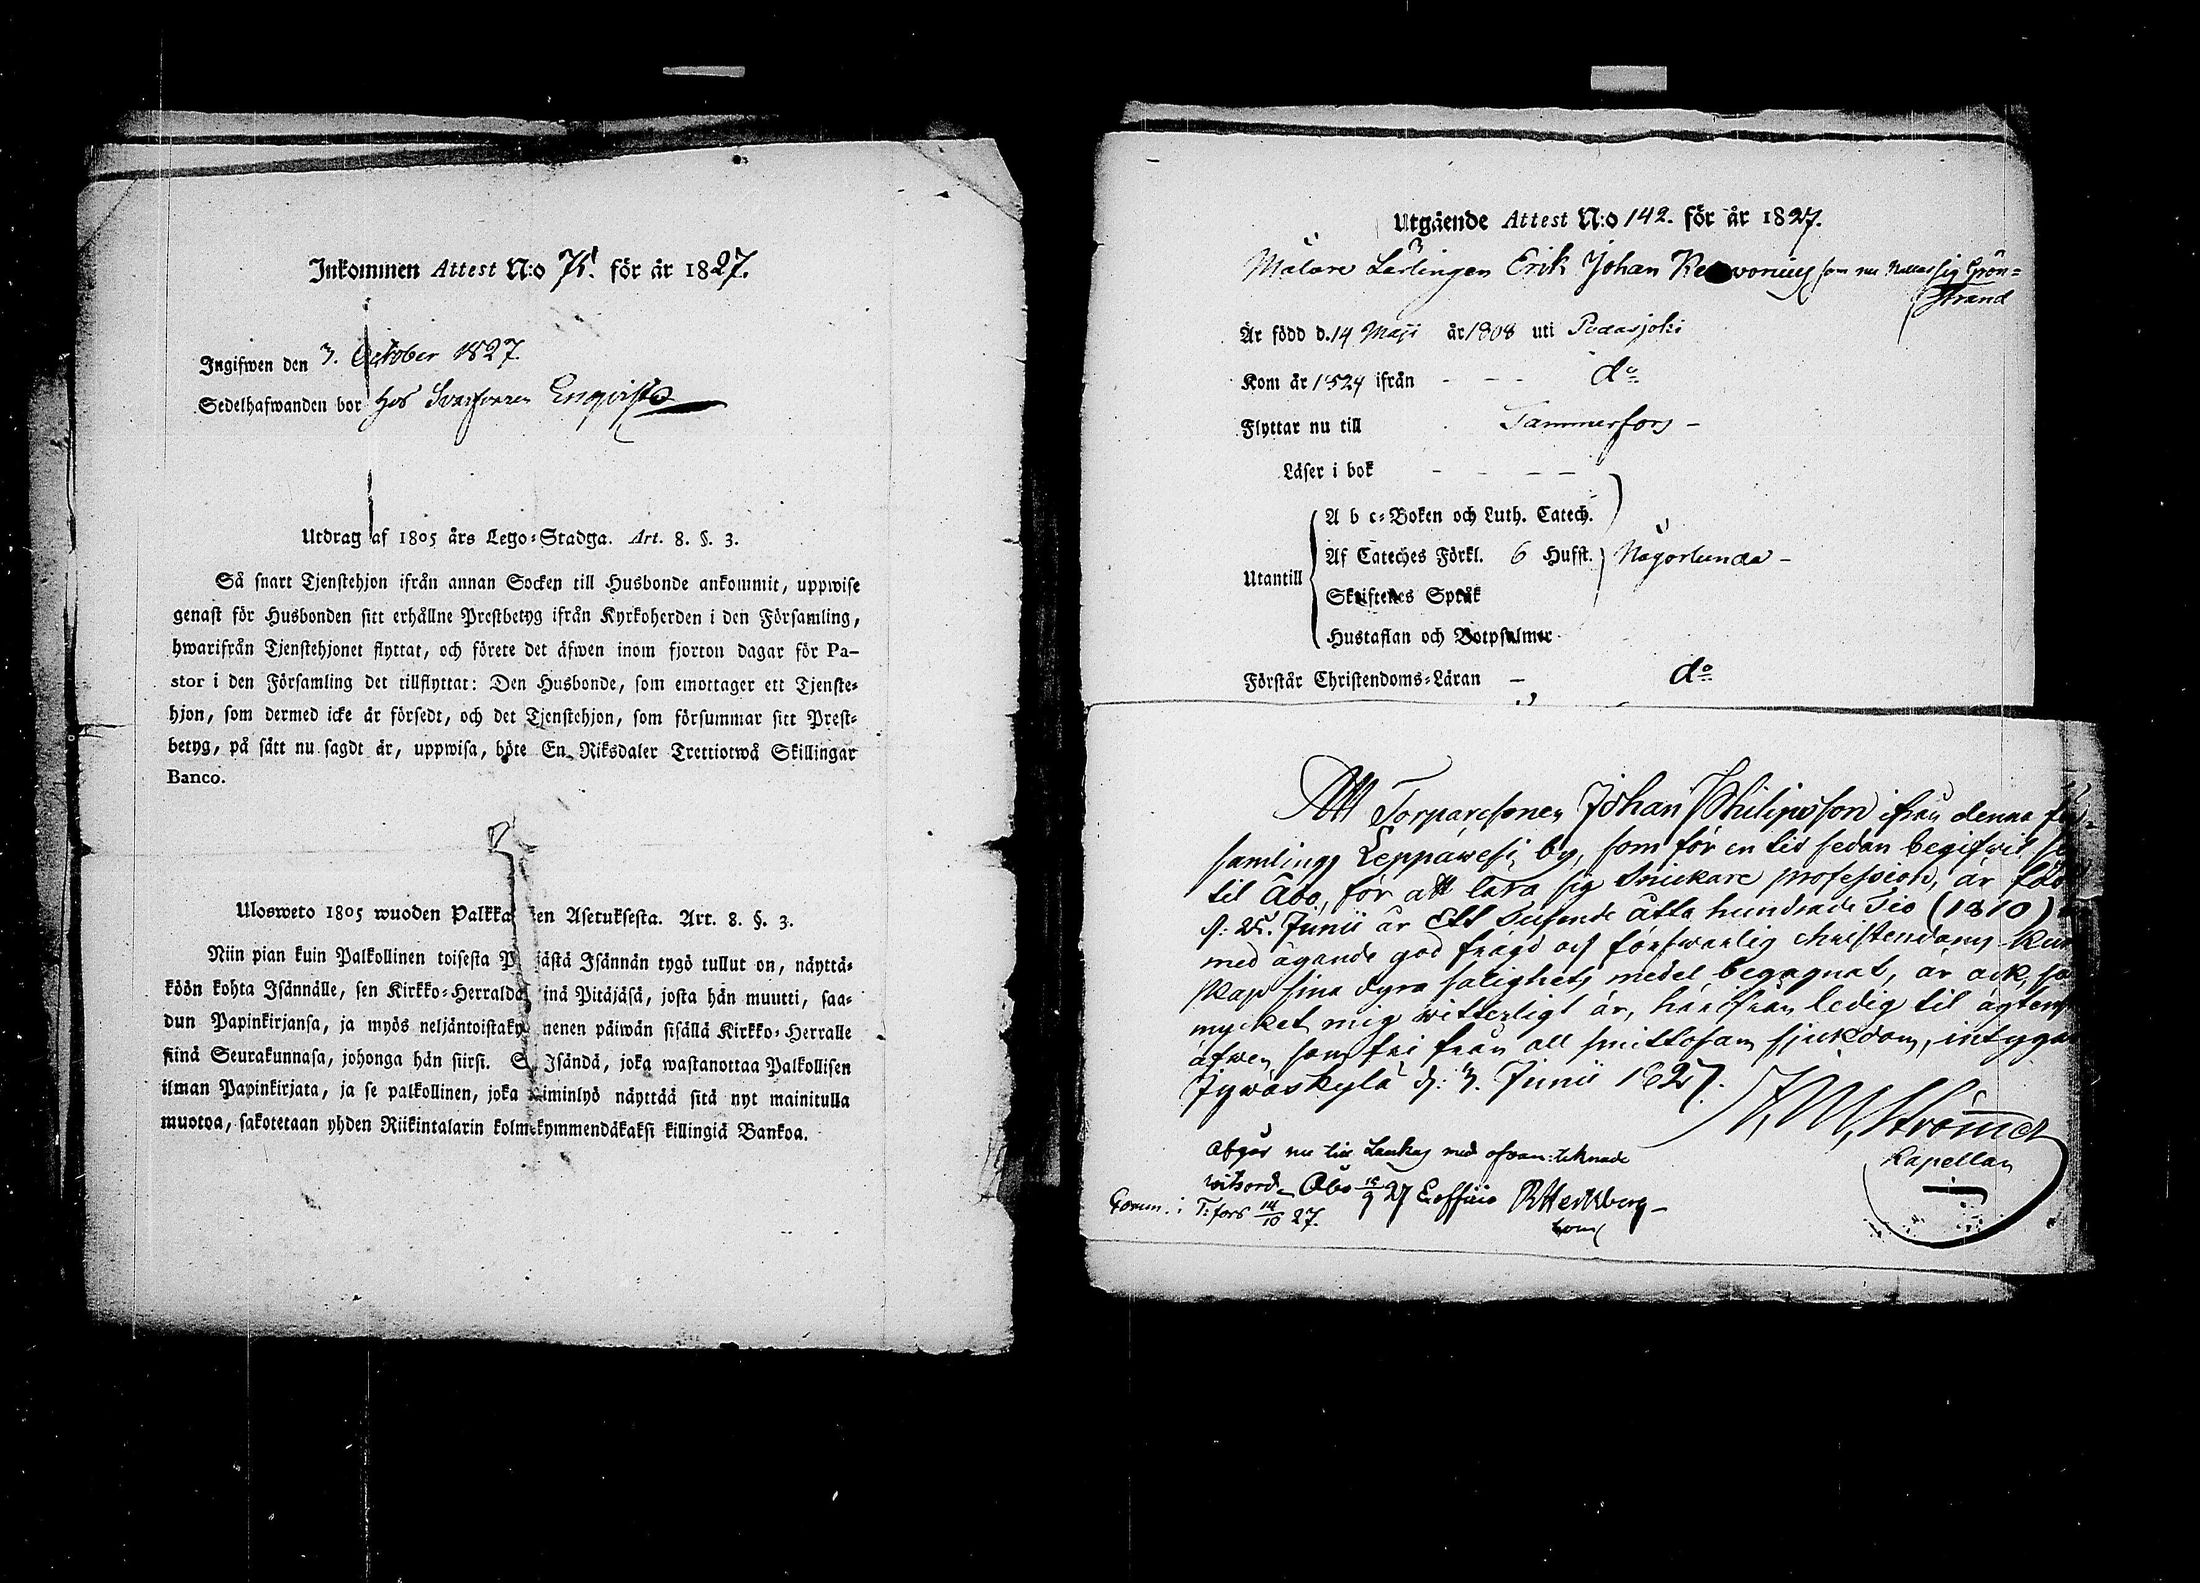 Inkommen Attest N:o 75. för år 1827.
Ingifwen den 3. October 1827.
Sedelhafwanden bor hos Svarfvaren Enqvist
Utdrag af 1805 års Lego-Stadga. Art. 8. §. 3.
Så snart Tjenstehjon ifrån annan Socken till Husbonde ankommit, uppwise
genast för Husbonden sitt erhållne Prestbetyg ifrån Kyrkoherden i den Församling,
hwarifrån Tjenstehjonet flyttat, och förete det äfwen inom fjorton dagar för Pa-
stor i den Församling det tillflyttat: Den Husbonde, som emottager ett Tjenste-
hjon, som dermed icke är försedt, och det Tjenstehjon, som försummar sitt Prest-
betyg, på sätt nu sagdt är, uppwisa, böte En Riksdaler Trettiotwå Skillingar
Banco.
Ulosweto 1805 wuoden Palkka en Asetuksesta. Art. 8. §. 3.
Niin pian kuin Palkollinen toisesta P jästä Isännän tygö tullut on, näyttä-
köön kohta Isännälle, sen Kirkko-Herralda inä Pitäjäsä, josta hän muutti, saa-
dun Papinkirjansa, ja myös neljäntoistaky nenen päiwän sisällä Kirkko-Herralle
siinä Seurakunnasa, johonga hän siirsi. S Isändä, joka wastanottaa Palkollisen
ilman Papinkirjata, ja se palkollinen, joka laiminlyö näyttää sitä nyt mainitulla
muotoa, sakotetaan yhden Riikintalarin kolmekymmendäkaksi killingiä Bankoa.
Utgående Attest N:o 142. för år 1827.
Målare Lärlingen Erik Johan som nu kallar sig Grön-
strand
Är född d. 14 Maji år 1808 uti Padasjoki
Kom år 1824 ifrån - - - d:o
Flyttar nu till Tammerfors -
Läser i bok - - - -
Utantill
A b c-Boken och Luth. Catech.
Af Cateches Förkl. 6 Hufst. Någorlunda -
Skriftenes Språk
Hustaflan och Botpsalmer
Förstår Christendoms-Läran - d:o
Att Torparesonen Johan Philipsson ifrån denna för-
samlings Leppäwesi by, som för en tid sedan begifwit
til Åbo, för att lära sig Snickare profession, är född
d: 25. Junii år Ett Tusende åtta hundrade Tio (1810)
med ägande god frägd och förswarlig christendoms kun
skap sina dyra salighets medel begagnat, är ock, så
mycket mig witterligt är, härifrån ledig til ägtenskap
äfwen som fri från all smittosam sjukdom, intygar
Jywäskylä d: 3. Junii 1827.
Strömmer
Kapellan
Afgår nu till Laukas med ofvan tecknade
witsord. Åbo 18/9 27 Ex officio R Hertzberg
Comm. i T:fors 14/10 27.